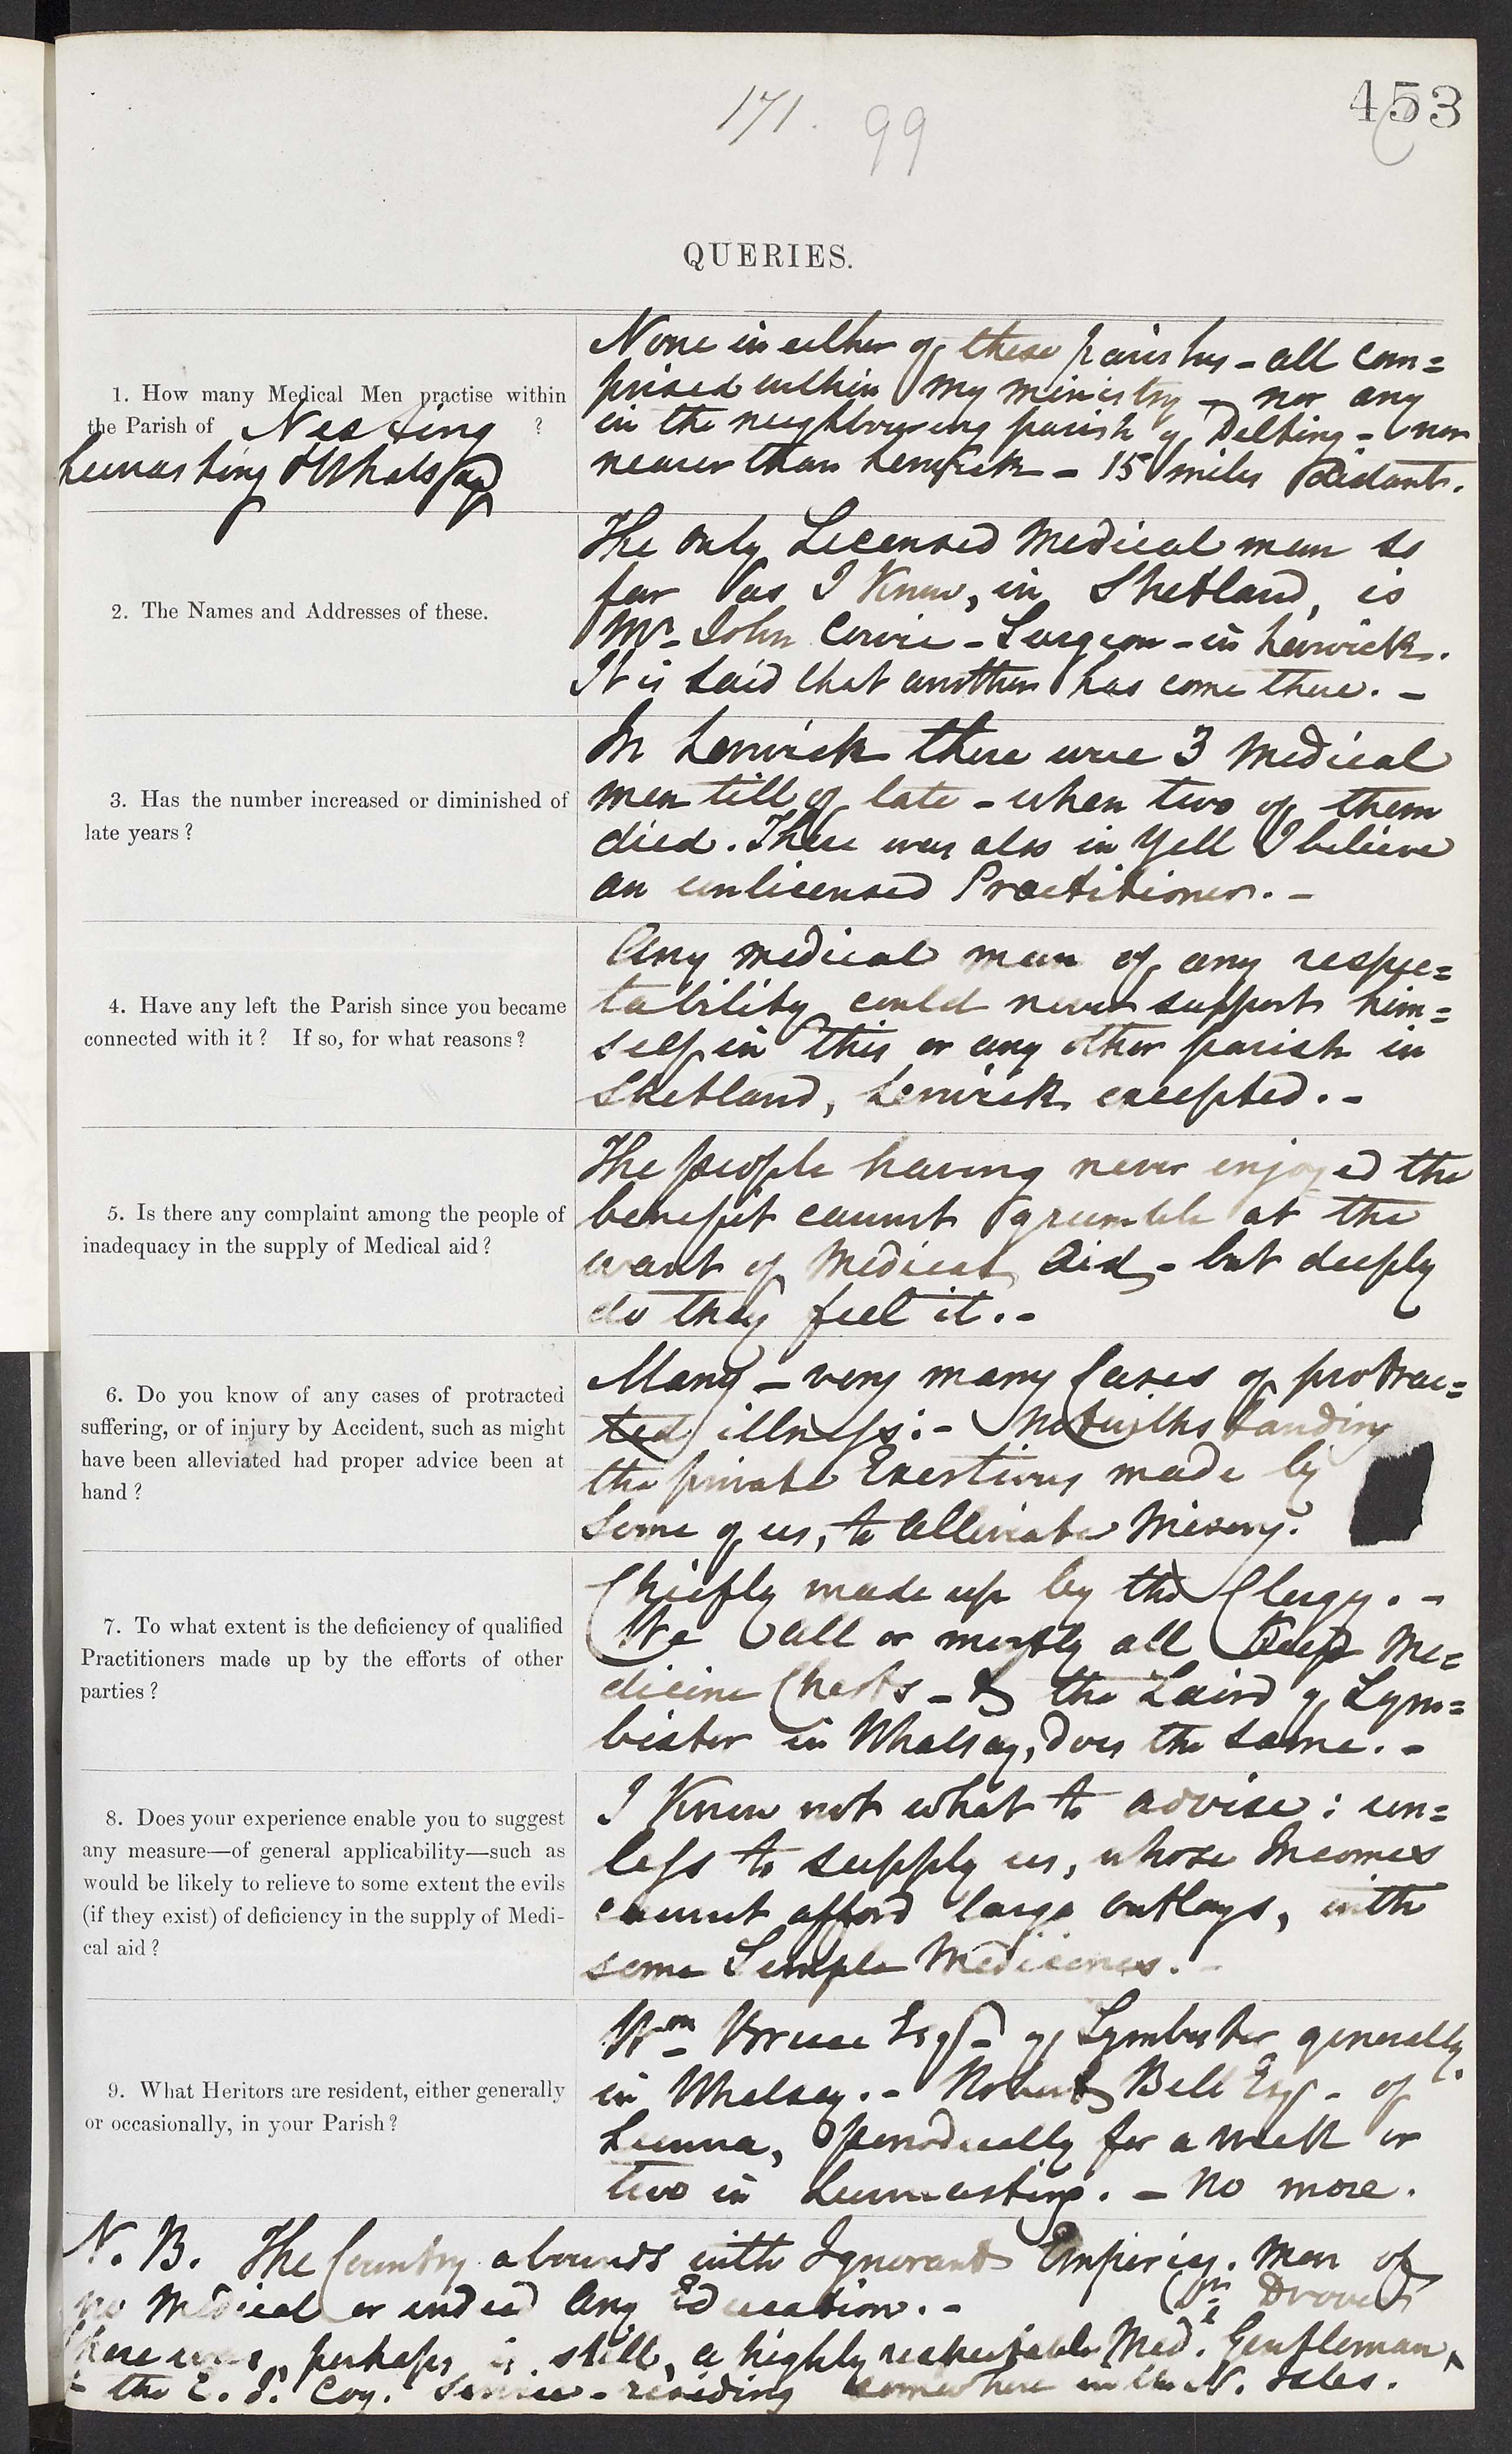 171. 99
453
QUERIES.
1. How many Medical Men practise within
the Parish of Nesting ?
Lunnasting & Whalsay
None in either of these parishes - all com=
prised within my ministry - nor any
in the neighbouring parish of Delting - nor
nearer than Lerwick - 15 miles distant.
2. The Names and Addresses of these.
The only Licensed Medical man so
far as I know, in Shetland, is
Mr John Cowie - Surgeon - in Lerwick.
It is said that another has come there. -
3. Has the number increased or diminished of
late years ?
In Lerwick there were 3 Medical
men till of late - when two of them
died. There was also in Yell I believe
an unlicensed Practitioner. -
4. Have any left the Parish since you became
connected with it ? If so, for what reasons ?
Any medical man of any respec=
tability could never support him=
self in this or any other parish in
Shetland, Lerwick excepted. -
5. Is there any complaint among the people of
inadequacy in the supply of Medical aid ?
The people having never enjoyed the
benefit cannot grumble at the
want of Medical Aid - but deeply
do they feel it. -
6. Do you know of any cases of protracted
suffering, or of injury by Accident, such as might
have been alleviated had proper advice been at
hand ?
Many - very many Cases of protrac=
ted illness: - Notwithstanding
the private Exertions made by
some of us, to alleviate Misery.
7. To what extent is the deficiency of qualified
Practitioners made up by the efforts of other
parties ?
Chiefly made up by the Clergy. -
We all or mostly all Keep Me=
dicine Chests - & the Laird of Sym=
bister in Whalsay, does the same. -
8. Does your experience enable you to suggest
any measure—of general applicability—such as
would be likely to relieve to some extent the evils
(if they exist) of deficiency in the supply of Medi-
cal aid ?
I Know not what to advise : un=
less to supply us, whose Incomes
cannot afford large outlays, with
some Simple Medicines. -
9. What Heritors are resident, either generally
or occasionally, in your Parish ?
Wm Bruce Esqr - of Symbister generally
in Whalsay. - Robert Bell Esqr - of
Lunna, periodically for a week or
two in Lunnasting. - No more.
N. B. The Country abounds with Ignorant Empirics. Men of
no Medical or indeed Any Education. -
There was, perhaps is still, a highly respectable Med.l Gentleman,
the E. I. Coy. Service - residing somewhere in the N. Isles.